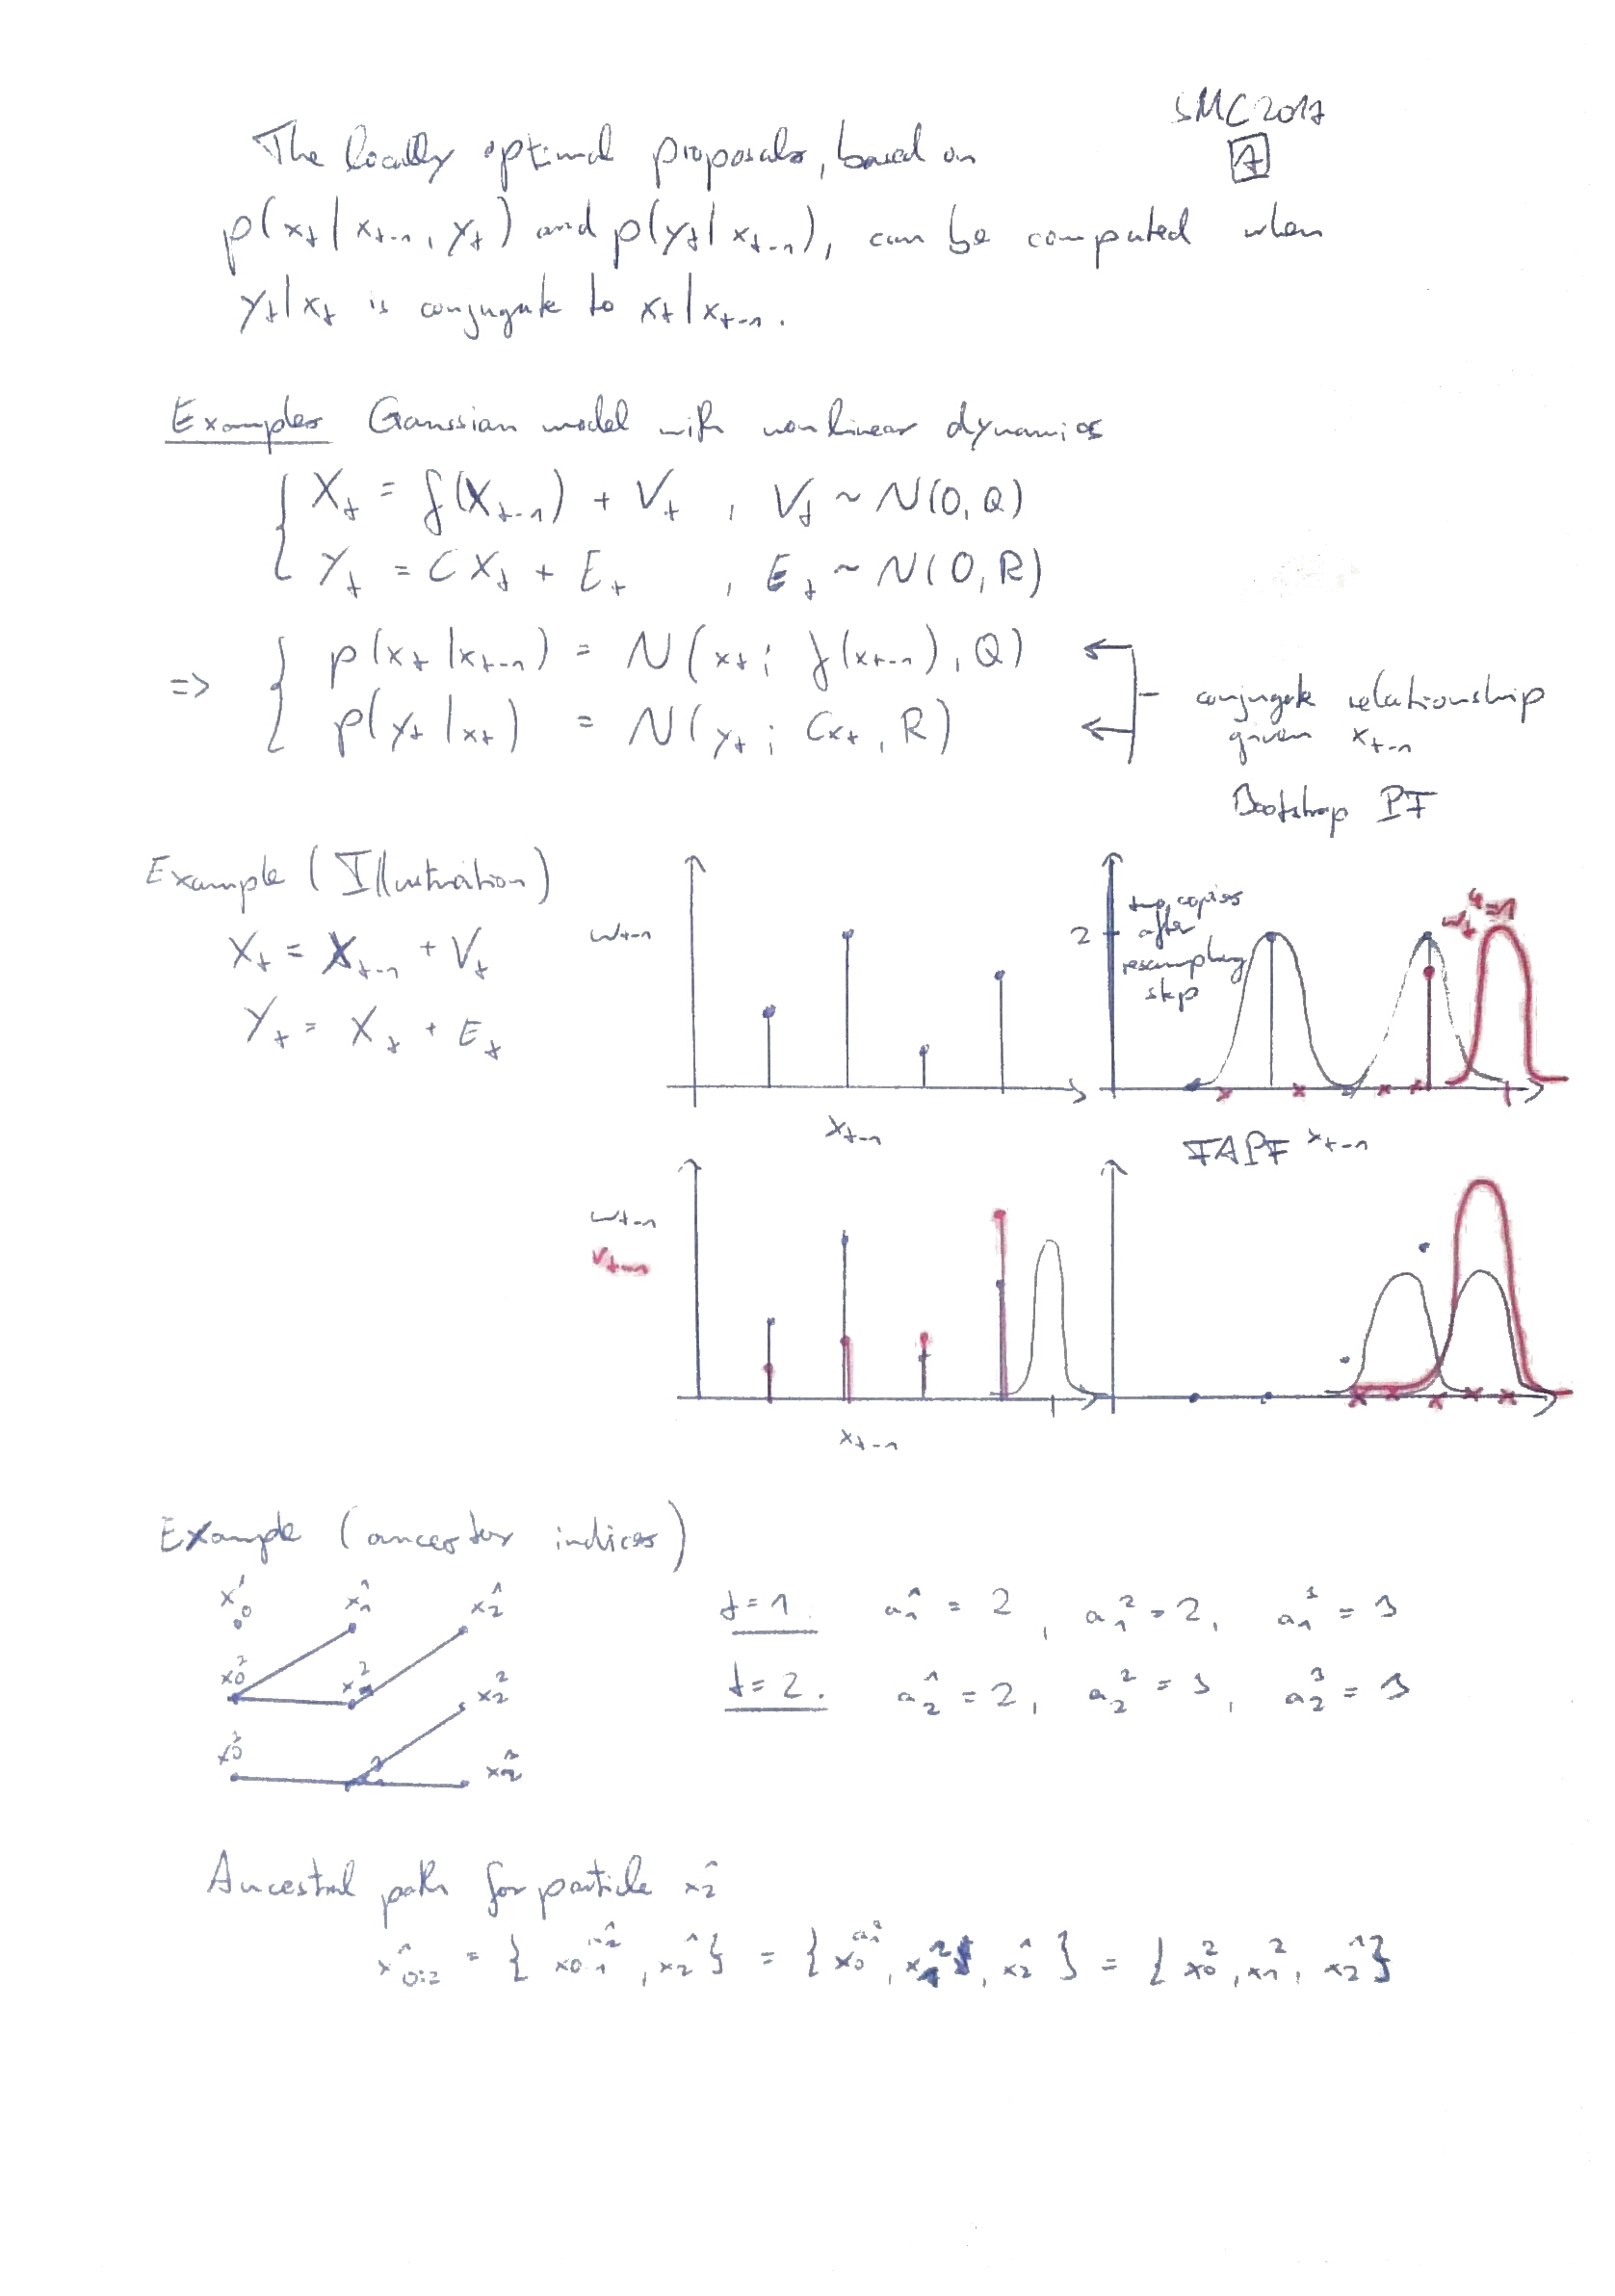 SMC2017
7
The locally optimal proposals, based on
p(x_t | x_{t-1}, y_t) and p(y_t | x_{t-1}), can be computed when
y_t | x_t is conjugate to x_t | x_{t-1}.
Examples Gaussian model with nonlinear dynamics
X_t = f(X_{t-1}) + V_t , V_t ~ N(0, Q)
Y_t = C X_t + E_t , E_t ~ N(0, R)
=> p(x_t | x_{t-1}) = N(x_t ; f(x_{t-1}), Q)
p(y_t | x_t) = N(y_t ; Cx_t, R)
conjugate relationship
given x_{t-1}
Bootstrap PF
Example (Illustration)
X_t = X_{t-1} + V_t
Y_t = X_t + E_t
w_{t-1}
x_{t-1}
2
two copies
after
resampling
step
w_t^4=1
x_{t-1}
FAPF
w_{t-1}
v_{t-1}
x_{t-1}
Example (ancestor indices)
x_0^1 x_1^1 x_2^1
x_0^2 x_1^2 x_2^2
x_0^3 x_1^3 x_2^3
t=1. a_1^1 = 2, a_1^2 = 2, a_1^3 = 3
t=2. a_2^1 = 2, a_2^2 = 3, a_2^3 = 3
Ancestral path for particle x_2^1
x_{0:2}^1 = { x_{0:1}^{a_2^1}, x_2^1 } = { x_0^{a_1^2}, x_1^2, x_2^1 } = { x_0^2, x_1^2, x_2^1 }